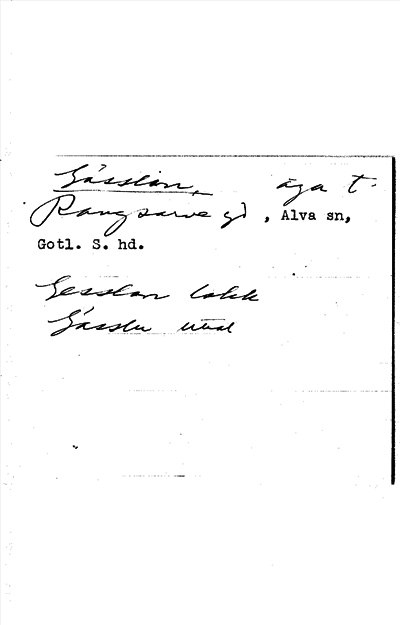 Gässlan, äga t.
Rangsarve gd, Alva sn,
Gotl. S. hd.
Gesslan lakk
Gässlu uval